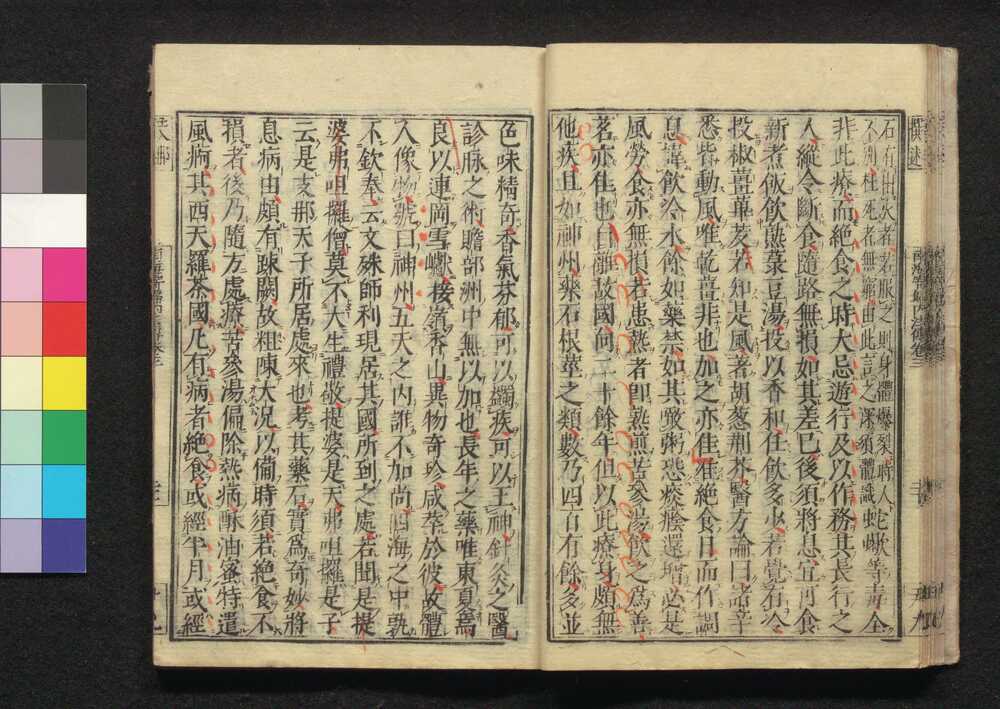 石有出火者若服之則身體爆裂時人
不別枉死者無窮由此言之深須體識蛇蠍等毒全
非此療而絕食之時大忌遊行及以作務其長行之
人縱令斷食隨路無損如其差已後須將息宜可食
新煮飯飲熟菉豆湯投以香和任飲多少若覺有冷
投椒薑蓽茇若知是風著胡葱荊芥醫方論曰諸辛
悉皆動風唯乾薑非也加之亦佳准絕食日而作調
息諱飲冷水餘如藥禁如其噉粥恐痰癊還增必是
風勞食亦無損若患熱者即熟煎苦參湯飲之為善
茗亦佳也自離故國向二十餘年但以此療身頗無
他疾且如神州藥石根莖之類數乃四百有餘多並
色味精奇香氣芬郁可以蠲疾可以王神針灸之醫
診脉之術贍部洲中無以加也長年之藥唯東夏焉
良以連岡雪巘接嶺香山異物奇珍咸萃於彼故體
人像物號曰神州五天之內誰不加尚四海之中孰
不欽奉云文殊師利現居其國所到之處若聞是提
婆弗呾攞僧莫不大生禮敬提婆是天弗呾攞是子
云是支那天子所居處來也考其藥石實為奇妙將
息病由頗有踈闕故粗陳大況以備時須若絕食不
損者後乃隨方處療苦參湯偏除熱病酥油蜜特遣
風痾其西天羅荼國凡有病者絕食或經半月或經